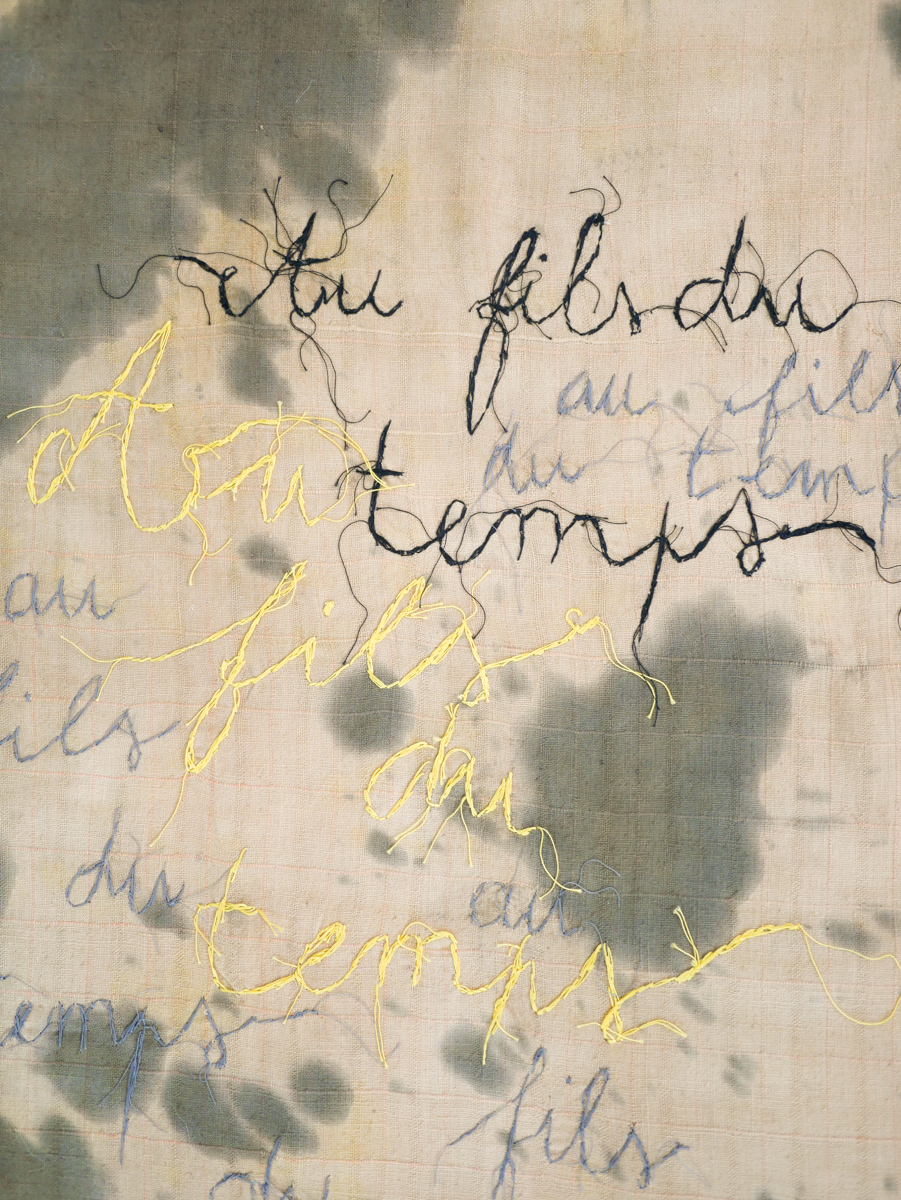 Au fils du
au fils
du temp
temps
Au
au
fils
fils
du
du
au
temps
emps
fils
du